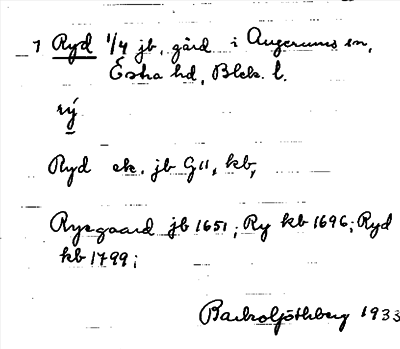 1 Ryd 1/4 jb, gård i Augerums sn,
Östra hd, Blek. l.
rý
Ryd ek. jb G11, kb,
Rysgaard jb 1651; Ry kb 1696; Ryd
kb 1799;
1933